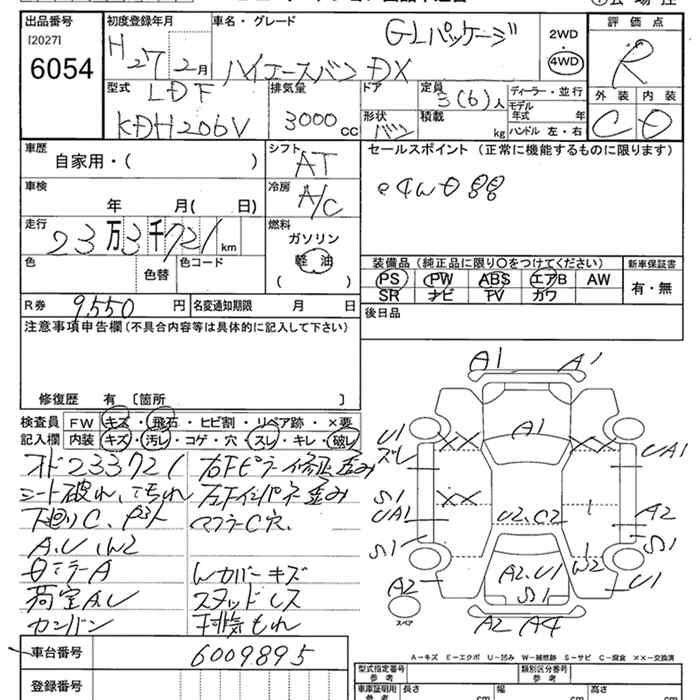 出品番号 初度登録年月 車名・グレード 評価点
[2027]
6054
H 27 2月 ハイエースバン DX GLパッケージ
2WD
・
4WD
R
型式 LDF 排気量 ドア 定員 ディーラー・並行
KDH206V 3000cc 5 3(6)人 モデル年式 年
形状 バン 積載 kg ハンドル 左・右
外装 内装
C D
車歴 シフト セールスポイント (正常に機能するものに限ります)
自家用・( ) AT
車検 冷房
年 月( 日) A/C
走行 燃料
23万3千721km ガソリン
軽油
( )
色 色替 色コード
装備品 (純正品に限り○をつけてください) 新車保証書
PS PW ABS エアB AW 有・無
SR ナビ TV カワ
R券 9,550円 名変通知期限 月 日
後日品
注意事項申告欄(不具合内容等は具体的に記入して下さい)
修復歴 有 〔箇所 〕
検査員 FW キズ・飛石・ヒビ割・リペア跡・×要
記入欄 内装 キズ・汚レ・コゲ・穴・スレ・キレ・破レ
オド233721
シート破れ
下廻りC
A.U.W2
マフラーC穴
Wカバーキズ
荷室A.U
スタッドレス
カンバン
排気もれ
A1 A1
A1
U1
UA1
S1
UA1
A2
S1
S1
U2.C2
W2
U1
A2
A2.U1
S1
スペア
A2 A4
A-キズ E-エクボ U-凹み W-補修跡 S-サビ C-腐食 ××-交換済
車台番号 6009895
登録番号
型式指定番号 参考 類別区分番号 参考
車庫証明用 参考 長さ cm 幅 cm 高さ cm